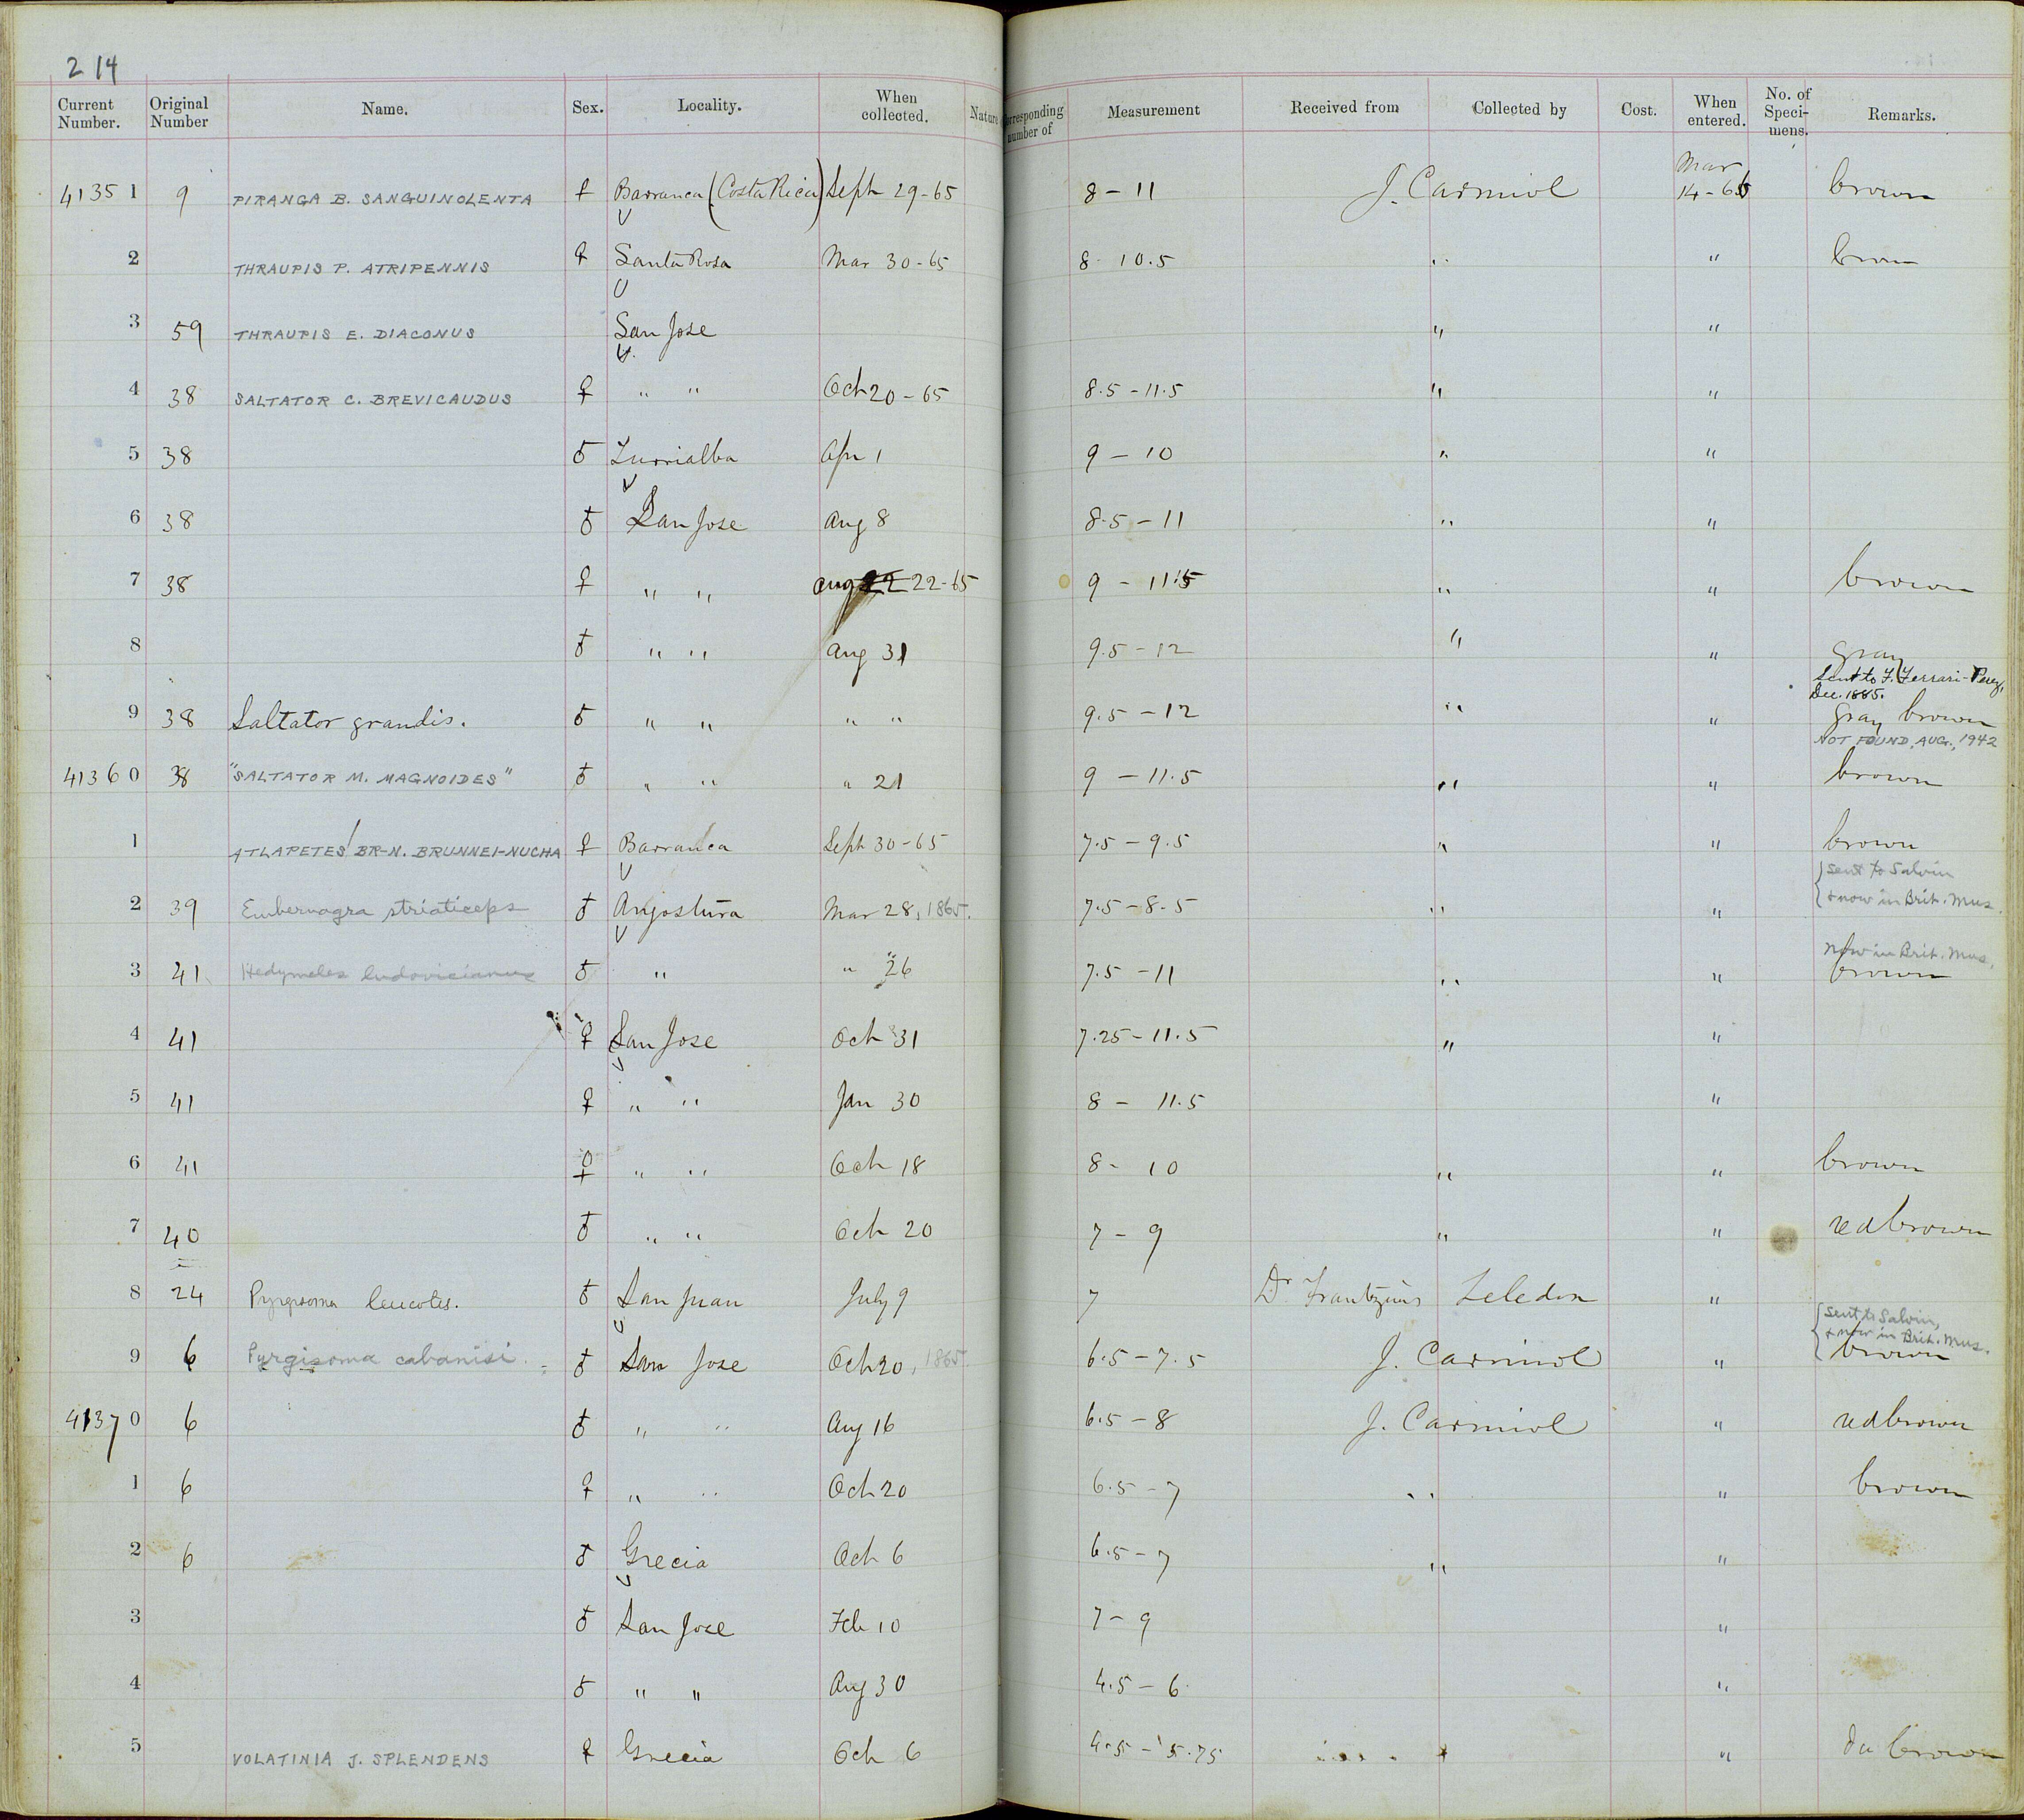 214
Current Number. Original Number Name. Sex. Locality. When collected. Nature Corresponding number of Measurement Received from Collected by Cost. When entered. No. of Specimens. Remarks.
41351 9 PIRANGA B. SANGUINOLENTA ♀ Barranca (Costa Rica) Sept 29-65 8 - 11 J. Carmiol Mar 14-66 brown
2 THRAUPIS P. ATRIPENNIS ♀ Santa Rosa Mar 30-65 8 - 10.5 " " brown
3 59 THRAUPIS E. DIACONUS San Jose " "
4 38 SALTATOR C. BREVICAUDUS ♀ " " Oct 20-65 8.5 - 11.5 " "
5 38 ♂ Turrialba Apr 1 9 - 10 " "
6 38 ♂ San Jose Aug 8 8.5 - 11 " "
7 38 ♀ " " Aug 22 22-65 9 - 11.5 " " brown
8 ♂ " " Aug 31 9.5 - 12 " " gray
Sent to F. Ferrari-Perez, Dec. 1885.
9 38 Saltator grandis. ♂ " " " " 9.5 - 12 " " gray brown
NOT FOUND, AUG., 1942
41360 38 "SALTATOR M. MAGNOIDES" ♂ " " " 21 9 - 11.5 " " brown
1 ATLAPETES BR-N. BRUNNEI-NUCHA ♀ Barranca Sept 30-65 7.5 - 9.5 " " brown
2 39 Embernagra striaticeps ♂ Angostura Mar 28, 1865. 7.5 - 8.5 " " sent to Salvin
& now in Brit. Mus.
3 41 Hedymeles ludovicianus ♂ " " 26 7.5 - 11 " " Now in Brit. Mus.
brown
4 41 ♀ San Jose Oct 31 7.25 - 11.5 " "
5 41 ♀ " " Jan 30 8 - 11.5 "
6 41 ♀ " " Oct 18 8 - 10 " " brown
7 40 ♂ " " Oct 20 7 - 9 " " red brown
8 24 Pyrgisoma leucotis. ♂ San Juan July 9 7 Dr Frantzius Zeledon "
9 6 Pyrgisoma cabanisi. ♂ San Jose Oct 20, 1865. 6.5 - 7.5 J. Carmiol " sent to Salvin,
& now in Brit. Mus.
brown
41370 6 ♂ " " Aug 16 6.5 - 8 J. Carmiol " red brown
1 6 ♀ " " Oct 20 6.5 - 7 " " brown
2 6 ♂ Grecia Oct 6 6.5 - 7 " "
3 ♂ San Jose Feb 10 7 - 9 "
4 ♂ " " Aug 30 4.5 - 6 "
5 VOLATINIA J. SPLENDENS ♀ Grecia Oct 6 4.5 - 5.75 " brown